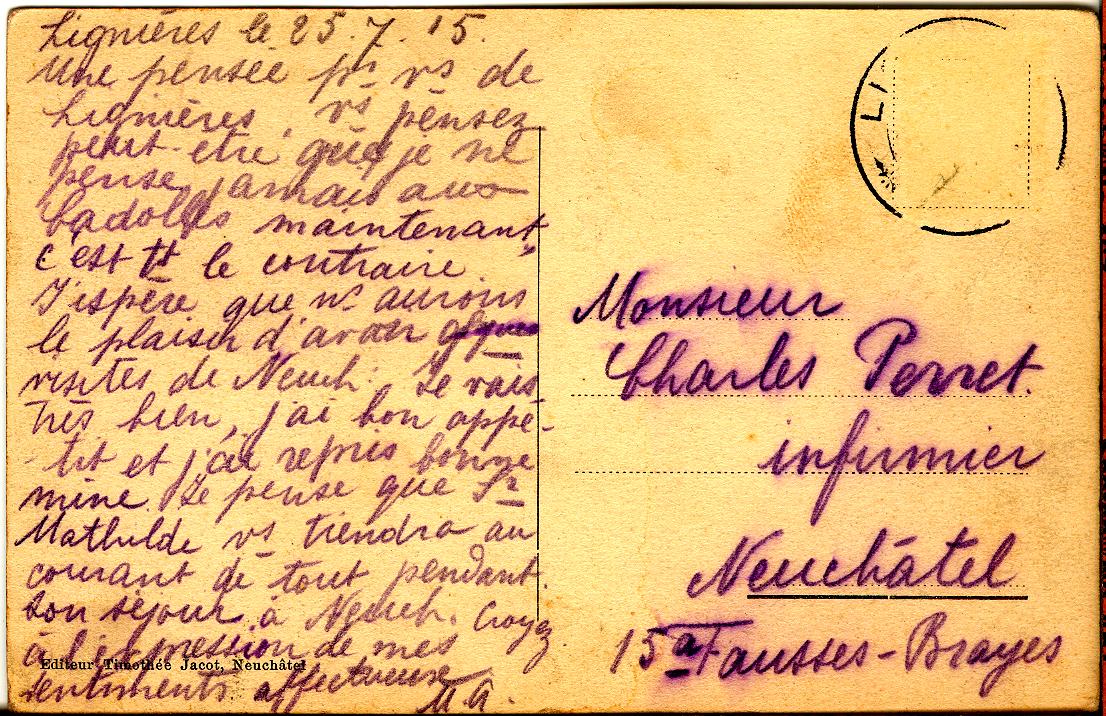 Lignières le 25.7.15.
Une pensée pr vs de
Lignières, vs pensez
peut-être que je ne
pense jamais aux
Cadolles maintenant,
c'est tt le contraire.
J'espère que ns aurons
le plaisir d'avoir qlques
visites de Neuch: Je vais
très bien, j'ai bon appé-
tit et j'ai repris bonne
mine. Je pense que Sr
Mathilde vs tiendra au
courant de tout pendant
son séjour à Neuch. Croyez
à l'expression de mes
sentiments affectueux
M.A.
Editeur Timothée Jacot, Neuchâtel
LI
Monsieur
Charles Perret.
infirmier
Neuchâtel
15a Fausses-Brayes